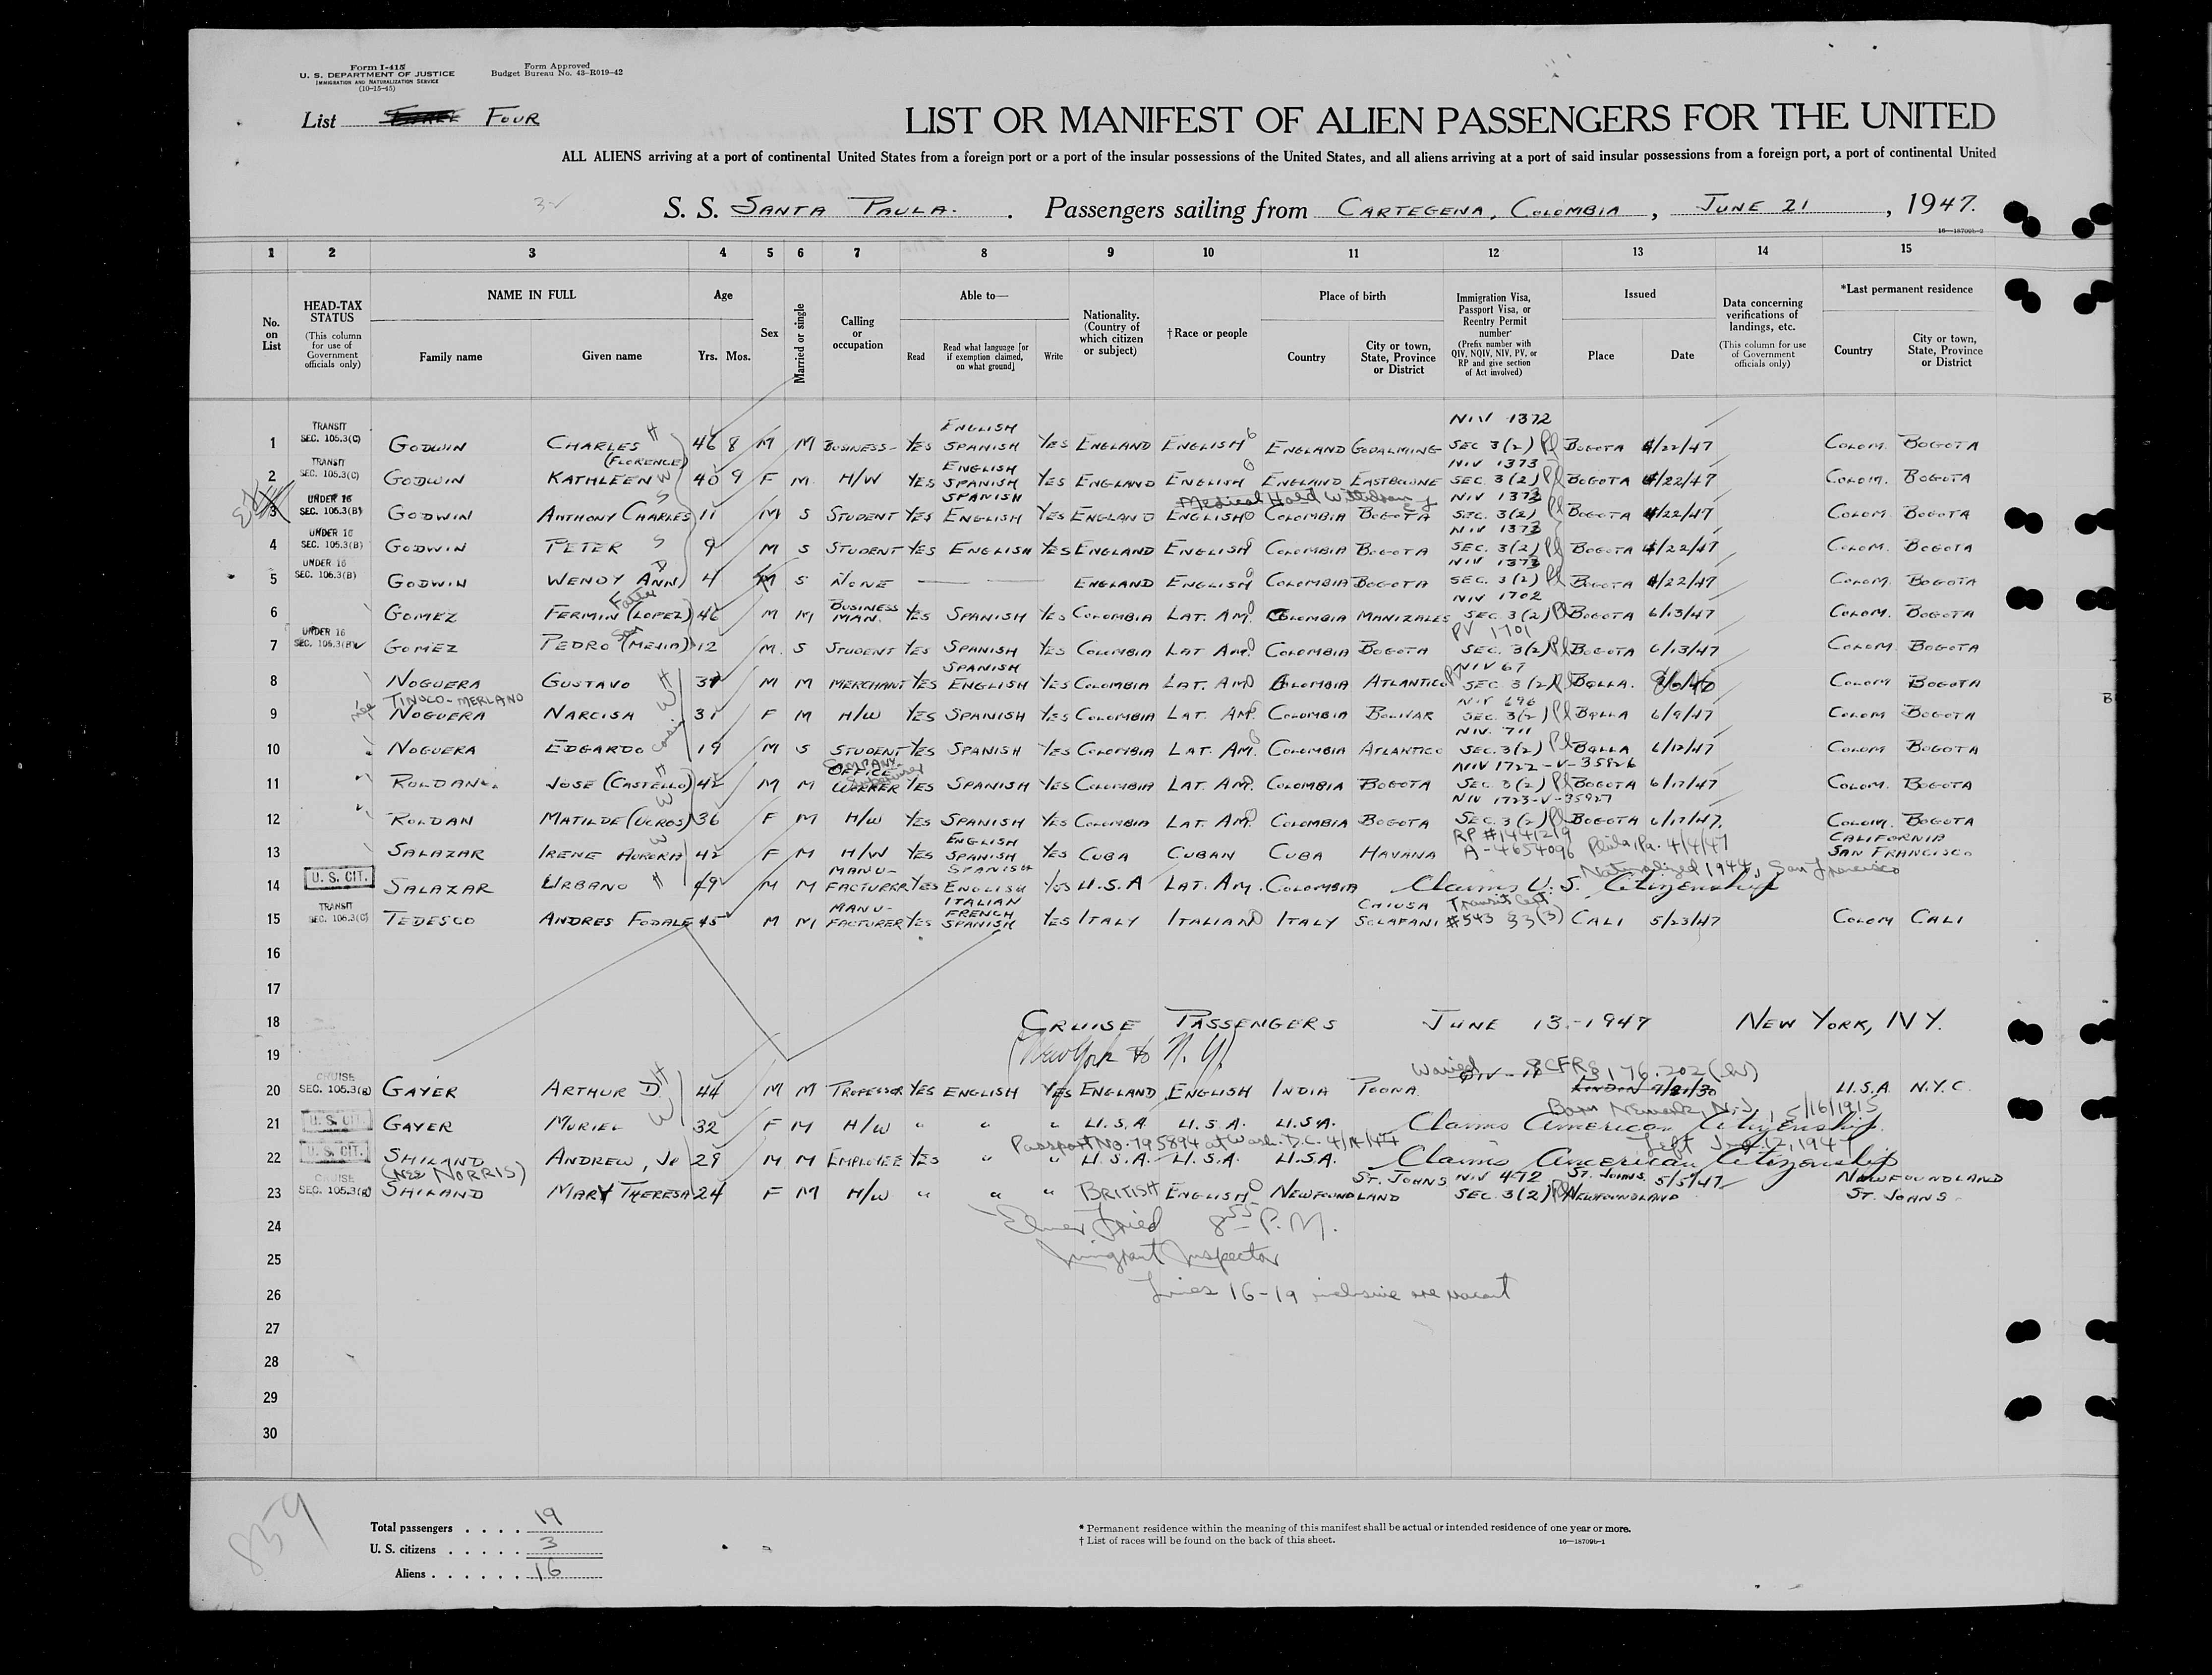 Form I-415
U. S. DEPARTMENT OF JUSTICE
IMMIGRATION AND NATURALIZATION SERVICE
(10-15-45)
Form Approved
Budget Bureau No. 43-R019-42
List FOUR
LIST OR MANIFEST OF ALIEN PASSENGERS FOR THE UNITED
ALL ALIENS arriving at a port of continental United States from a foreign port or a port of the insular possessions of the United States, and all aliens arriving at a port of said insular possessions from a foreign port, a port of continental United
S. S. SANTA PAULA. Passengers sailing from CARTEGENA, COLOMBIA, JUNE 21, 1947.
16—18709b-2
1 2 3 4 5 6 7 8 9 10 11 12 13 14 15
No. on List
HEAD-TAX STATUS (This column for use of Government officials only)
NAME IN FULL
Family name Given name
Age
Yrs. Mos.
Sex
Married or single
Calling or occupation
Able to—
Read
Read what language [or if exemption claimed, on what ground]
Write
Nationality. (Country of which citizen or subject)
†Race or people
Place of birth
Country
City or town, State, Province or District
Immigration Visa, Passport Visa, or Reentry Permit number (Prefix number with QIV, NQIV, NIV, PV, or RP and give section of Act involved)
Issued
Place Date
Data concerning verifications of landings, etc. (This column for use of Government officials only)
*Last permanent residence
Country
City or town, State, Province or District
1 TRANSIT SEC. 105.3(C) GODWIN CHARLES H 46 8 M M BUSINESS- YES ENGLISH SPANISH YES ENGLAND ENGLISH ENGLAND GODALMING NIV 1372 SEC 3(2) BOGOTA 4/22/47 COLOM. BOGOTA
2 TRANSIT SEC. 105.3(C) GODWIN (FLORENCE) KATHLEEN W 40 9 F M H/W YES ENGLISH SPANISH YES ENGLAND ENGLISH ENGLAND EASTBOURNE NIV 1373 SEC. 3(2) BOGOTA 4/22/47 COLOM. BOGOTA
Medical Hold Withdrawn
3 UNDER 16 SEC. 105.3(B) GODWIN ANTHONY CHARLES S 11 M S STUDENT YES SPANISH ENGLISH YES ENGLAND ENGLISH COLOMBIA BOGOTA NIV 1373 SEC. 3(2) BOGOTA 4/22/47 COLOM. BOGOTA
4 UNDER 16 SEC. 105.3(B) GODWIN PETER S 9 M S STUDENT YES ENGLISH YES ENGLAND ENGLISH COLOMBIA BOGOTA NIV 1373 SEC. 3(2) BOGOTA 4/22/47 COLOM. BOGOTA
5 UNDER 16 SEC. 105.3(B) GODWIN WENDY ANN D 4 S NONE ENGLAND ENGLISH COLOMBIA BOGOTA NIV 1373 SEC. 3(2) BOGOTA 4/22/47 COLOM. BOGOTA
6 GOMEZ FERMIN (LOPEZ) Father 46 M M BUSINESS MAN. YES SPANISH YES COLOMBIA LAT. AM. COLOMBIA MANIZALES NIV 1702 SEC. 3(2) BOGOTA 6/13/47 COLOM. BOGOTA
7 UNDER 16 SEC. 105.3(B) GOMEZ PEDRO (MEJIA) Son 12 M. S STUDENT YES SPANISH YES COLOMBIA LAT AM. COLOMBIA BOGOTA PV 1701 SEC. 3(2) BOGOTA 6/13/47 COLOM. BOGOTA
8 NOGUERA GUSTAVO H M M MERCHANT YES SPANISH ENGLISH YES COLOMBIA LAT. AM COLOMBIA ATLANTICO NIV 67 SEC. 3(2) BQLLA. COLOM BOGOTA
9 nee TINOCO-MERLANO NOGUERA NARCISA W 31 F M H/W YES SPANISH YES COLOMBIA LAT. AM. COLOMBIA BOLIVAR NIV 696 SEC. 3(2) BQLLA 6/9/47 COLOM BOGOTA
10 NOGUERA EDGARDO cousin 19 M S STUDENT YES SPANISH YES COLOMBIA LAT. AM. COLOMBIA ATLANTICO NIV. 711 SEC. 3(2) BQLLA 6/12/47 COLOM BOGOTA
11 ROLDAN JOSE (CASTELLO) H 42 M M COMPANY OFFICE WORKER YES SPANISH YES COLOMBIA LAT. AM. COLOMBIA BOGOTA NIV 1722-V-35926 SEC. 3(2) BOGOTA 6/17/47 COLOM. BOGOTA
12 ROLDAN MATILDE (UCROS) W 36 F M H/W YES SPANISH YES COLOMBIA LAT. AM. COLOMBIA BOGOTA NIV 1723-V-35927 SEC. 3(2) BOGOTA 6/17/47. COLOM. BOGOTA
13 SALAZAR IRENE AURORA W 42 F M H/W YES ENGLISH SPANISH YES CUBA CUBAN CUBA HAVANA RP #1441219 A-4654096 Phila, Pa. 4/4/47 CALIFORNIA SAN FRANCISCO
Naturalized 1944, San Francisco
14 U. S. CIT. SALAZAR URBANO H 49 M M MANUFACTURER YES SPANISH ENGLISH YES U.S.A LAT. AM. COLOMBIA Claims U. S. Citizenship
15 TRANSIT SEC. 105.3(C) TEDESCO ANDRES FODALE 45 M M MANU-FACTURER YES ITALIAN FRENCH SPANISH YES ITALY ITALIAN ITALY CHIUSA SCLAFANI Transit Cert #543 §3(3) CALI 5/23/47 COLOM CALI
16
17
18 CRUISE PASSENGERS JUNE 13-1947 NEW YORK, NY.
19 (New York to N. Y.)
20 CRUISE SEC. 105.3(B) GAYER ARTHUR D. H 44 M M PROFESSOR YES ENGLISH YES ENGLAND ENGLISH INDIA POONA Waived 8CFR 176.202 LONDON U.S.A N.Y.C.
Born Newark, N.J., 5/16/1915
21 U. S. CIT. GAYER MURIEL W 32 F M H/W " " " U.S.A U.S.A. U.S.A. Claims American Citizenship.
Passport No. 795894 at Wash. D.C. 4/14/47 Left
22 U. S. CIT. SHILAND ANDREW, Jr 29 M M EMPLOYEE YES " " U.S.A. U.S.A. U.S.A. Claims American Citizenship
23 CRUISE SEC. 105.3(B) (NEE NORRIS) SHILAND MARY THERESA 24 F M H/W " " " BRITISH ENGLISH NEWFOUNDLAND ST. JOHNS NIV 472 SEC. 3(2) ST. JOHNS NEWFOUNDLAND 5/5/47 NEWFOUNDLAND ST. JOHNS
24 Elmer Fried 8 55 P.M.
25 Immigrant Inspector
26 Lines 16-19 inclusive are vacant
27
28
29
30
859
Total passengers . . . . 19
U. S. citizens . . . . . 3
Aliens . . . . . . 16
* Permanent residence within the meaning of this manifest shall be actual or intended residence of one year or more.
† List of races will be found on the back of this sheet.
16—18709b-1